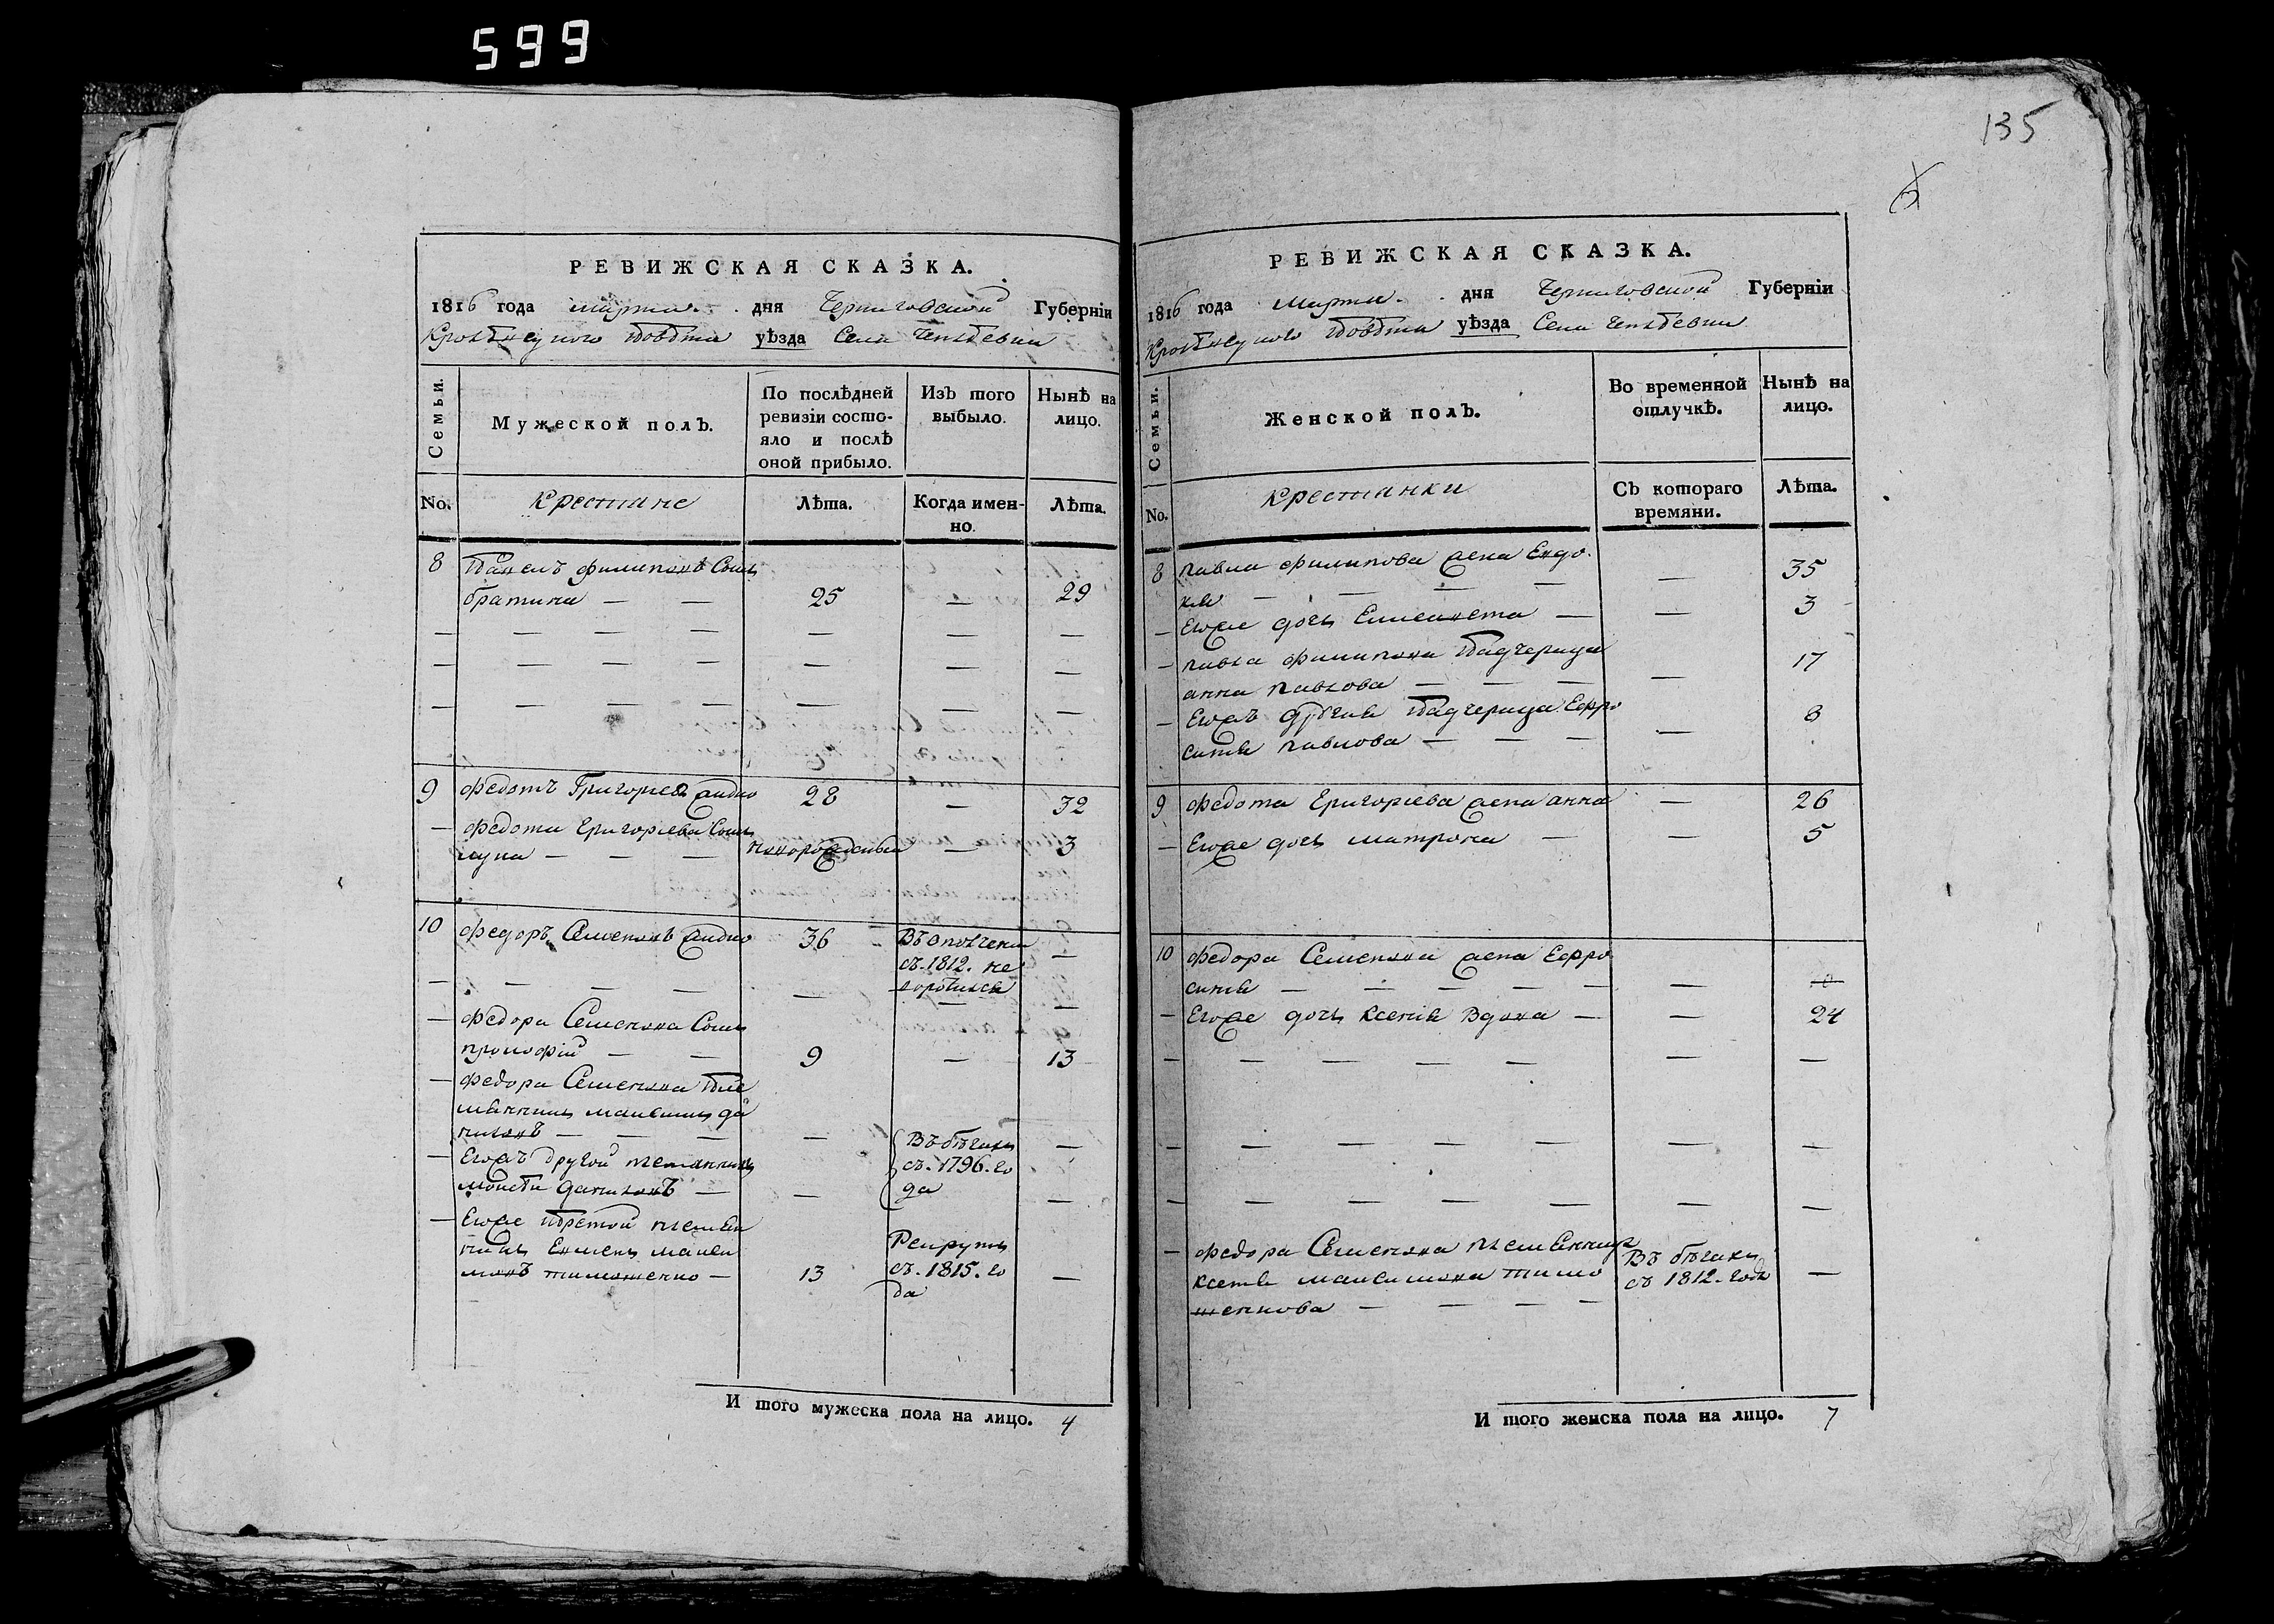 599
135
РЕВИЖСКАЯ СКАЗКА.
1816 года марта дня Черниговской Губерніи
Кролѣвецкого повѣта уѣзда Села
Семьи.
Мужеской полъ.
По послѣдней
ревизіи состо-
яло и послѣ
оной прибыло.
Изъ того
выбыло.
Нынѣ на
лицо.
No.
Крестяне
Лѣта.
Когда имен-
но.
Лѣта.
8 Павелъ Филиповъ Сынъ
братина — — 25 — 29
9 Федотъ Григориев 28 — 32
— Федота Григориева Сынъ
— — — новорожденный — 3
10 Федоръ Семеновъ 36 Въ ополчени —
съ 1812. не
— Федора Семенова Сынъ
прокофій — — 9 — 13
— Федора Семенова пле
мянникъ максимъ да
ниловъ — — — — Въ бѣгахъ —
— Егожъ другой племянникъ съ 1796. го
моисей даниловъ — — да —
— Егоже третой племян
никъ макси Рекрутъ
мовъ тимошенко — 13 съ 1815. го —
да
И того мужеска пола на лицо. 4
РЕВИЖСКАЯ СКАЗКА.
1816 года марта дня Черниговской Губерніи
Кролѣвецкого повѣта уѣзда Села
Семьи.
Женской полъ.
Во временной
отлучкѣ.
Нынѣ на
лицо.
No.
Крестянки
Съ котораго
времяни.
Лѣта.
8 павла Филипова жена Евдо
кия — — — — — 35
— Егоже дочь — — 3
— павла Филипова падчерица
анна павлова — — — — 17
— Егожъ другая падчерица Ефро
синия павлова — — — — 8
9 Федота Григориева жена анна — 26
— Егоже дочь матрона — — 5
10 Федора Семенова жена Ефро
синия — — — — — —
— Егоже дочь ксения вдова — — 24
— Федора Семенова племянница Въ бѣгахъ
ксения максимова тимо съ 1812. года —
шенкова — — — —
И того женска пола на лицо. 7